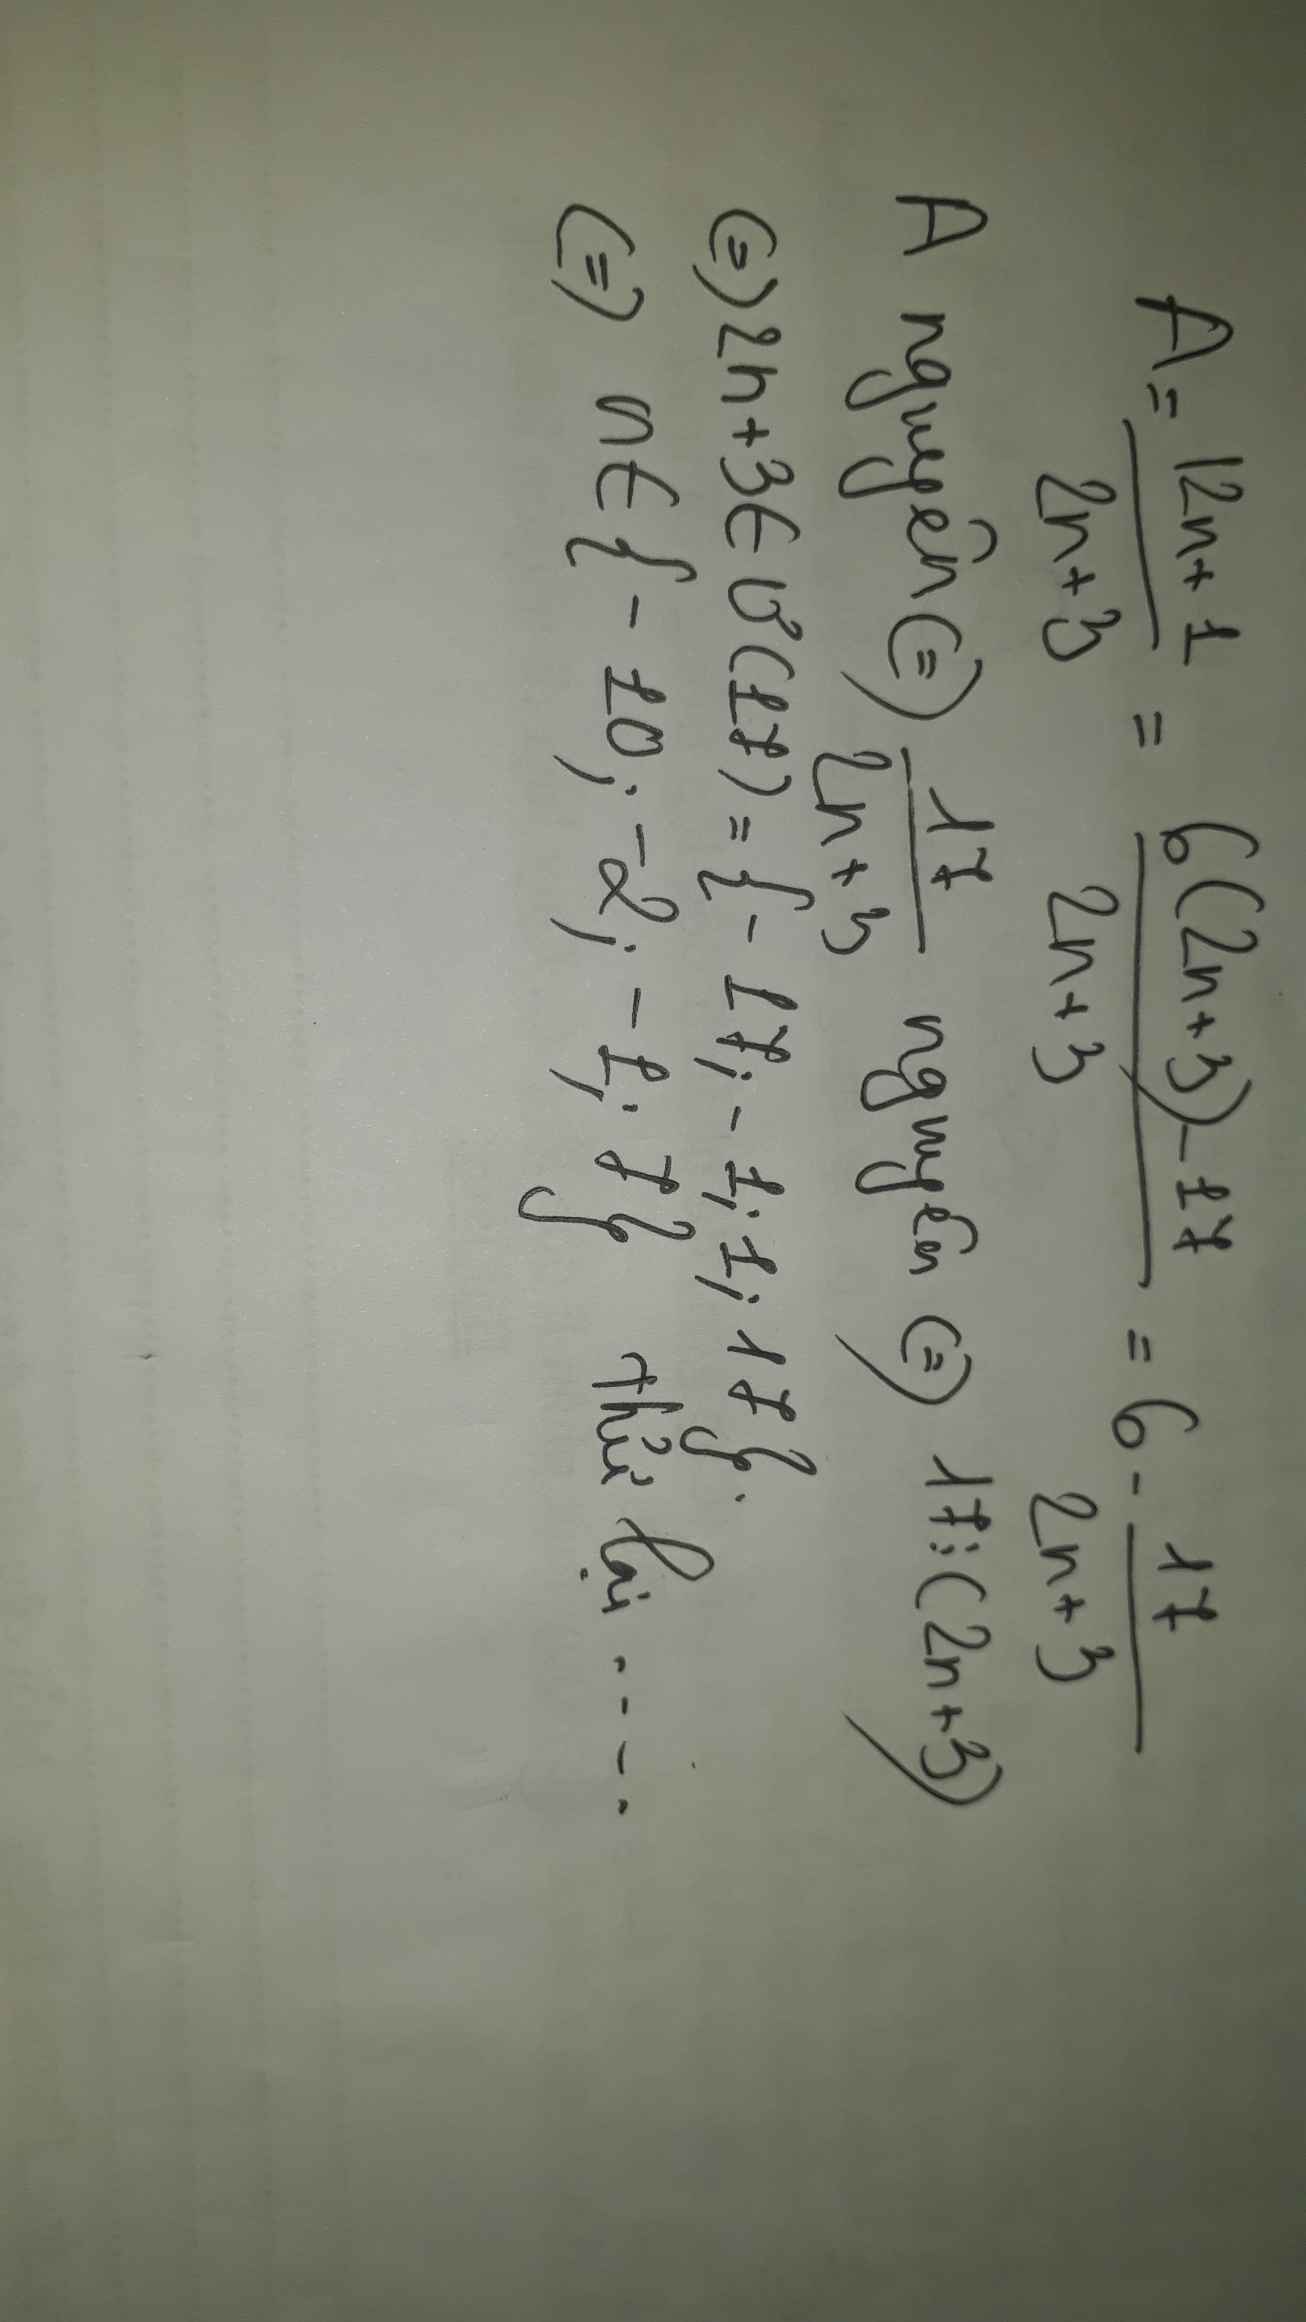 A = 12n+1 / 2n+3 = 6(2n+3)-17 / 2n+3 = 6 - 17 / 2n+3
A nguyên (=) 17 / 2n+3 nguyên (=) 17⋮(2n+3)
(=) 2n+3 ∈ Ư(17) = {-17; -1; 1; 17}.
(=) n ∈ {-10; -2; -1; 7} thử lại ....